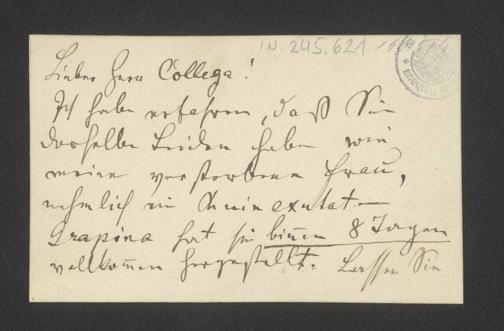 I.N. 245.621
Lieber Herr Collega!
Ich habe erfahren, daß Sie
dasselbe Leiden haben wie
meine verstorbene Frau,
nehmlich ein
Grapina hat sie binnen 8 Tagen
vollkommen hergestellt. Lassen Sie